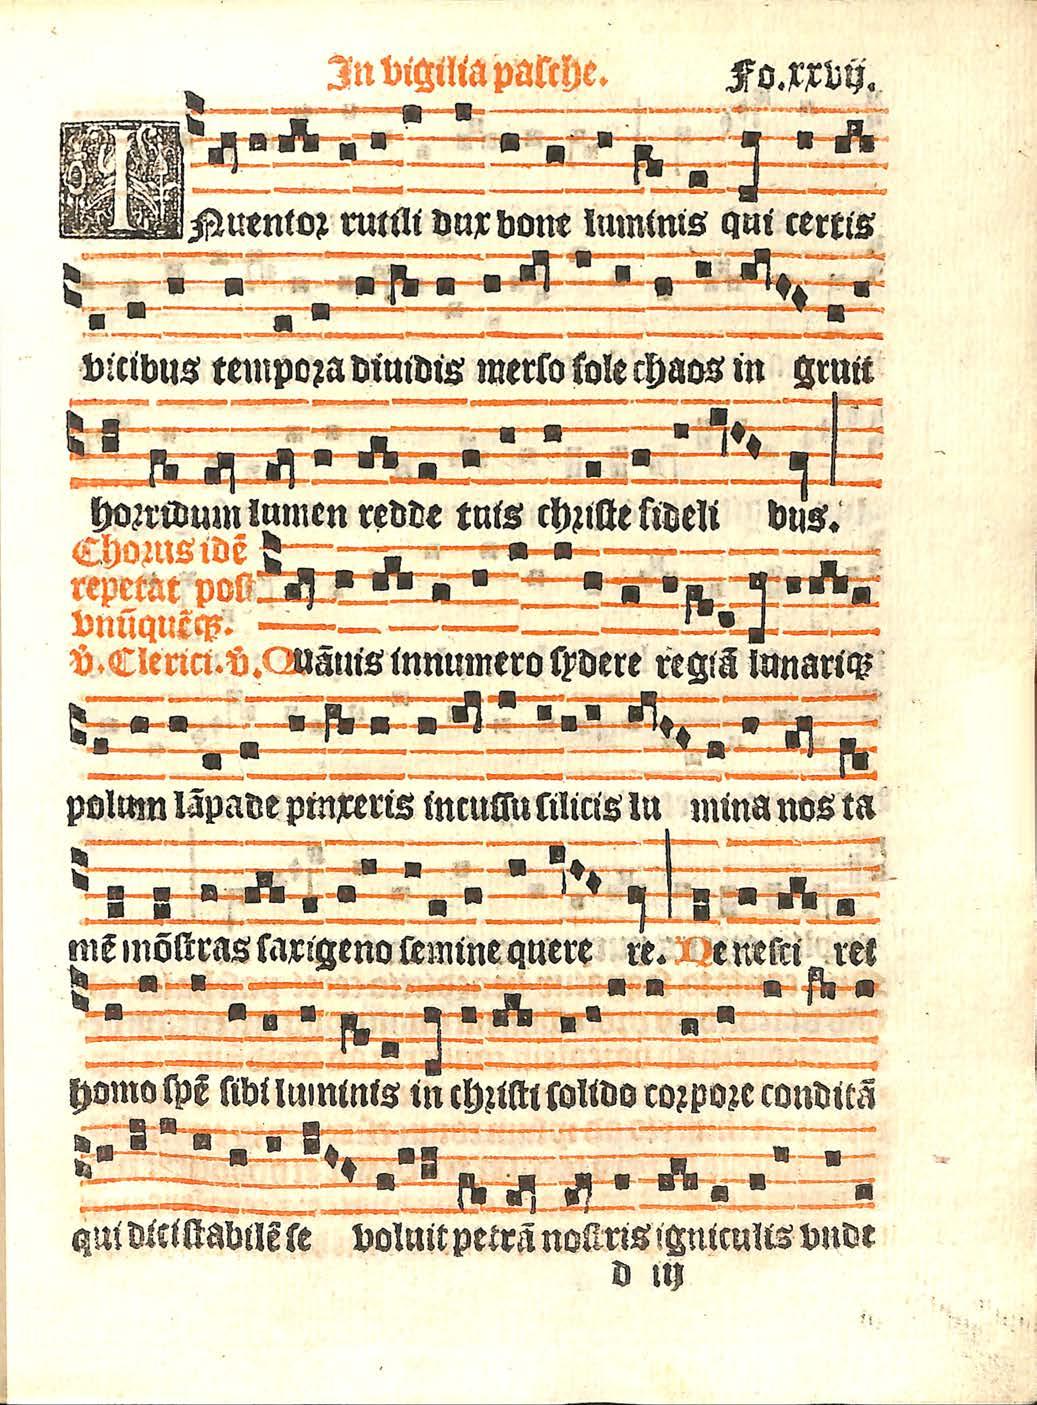 In vigilia pasche. Fo.xxvij.
INuentor rutili dux bone luminis qui certis
vicibus tempora diuidis merso sole chaos in gruit
horridum lumen redde tuis christe fideli bus.
Chorus idē
repetat post
vnūquēqȝ.
v̄.Clerici.v̄.Quāuis innumero sydere regiā lunariqȝ
polum lāpade pinxeris incussu silicis lu mina nos ta
mē mōstras saxigeno semine quere re. Ne nesci ret
homo spē sibi luminis in christi solido corpore conditā
qui dici stabilē se voluit petrā nostris igniculis vnde
d iij